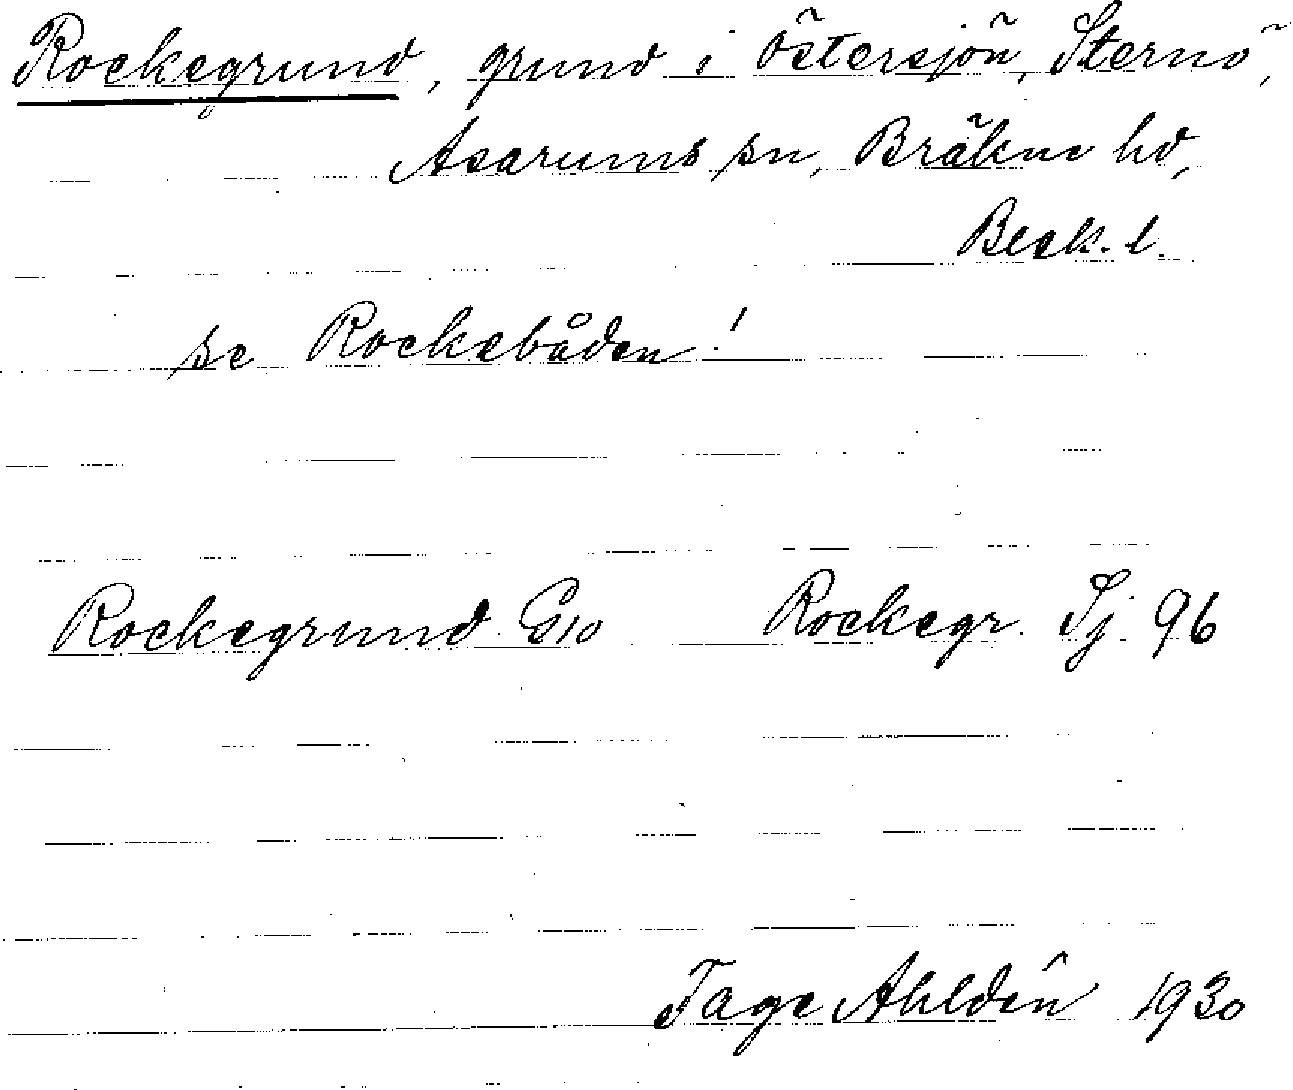 Rockegrund, grund i Östersjön, Sternö,
Asarums sn, Bräkne hd,
Bleck. l.
se Rockebåden!
Rockegrund G10 Rockegr. Sj. 96
Tage Ahldén 1930